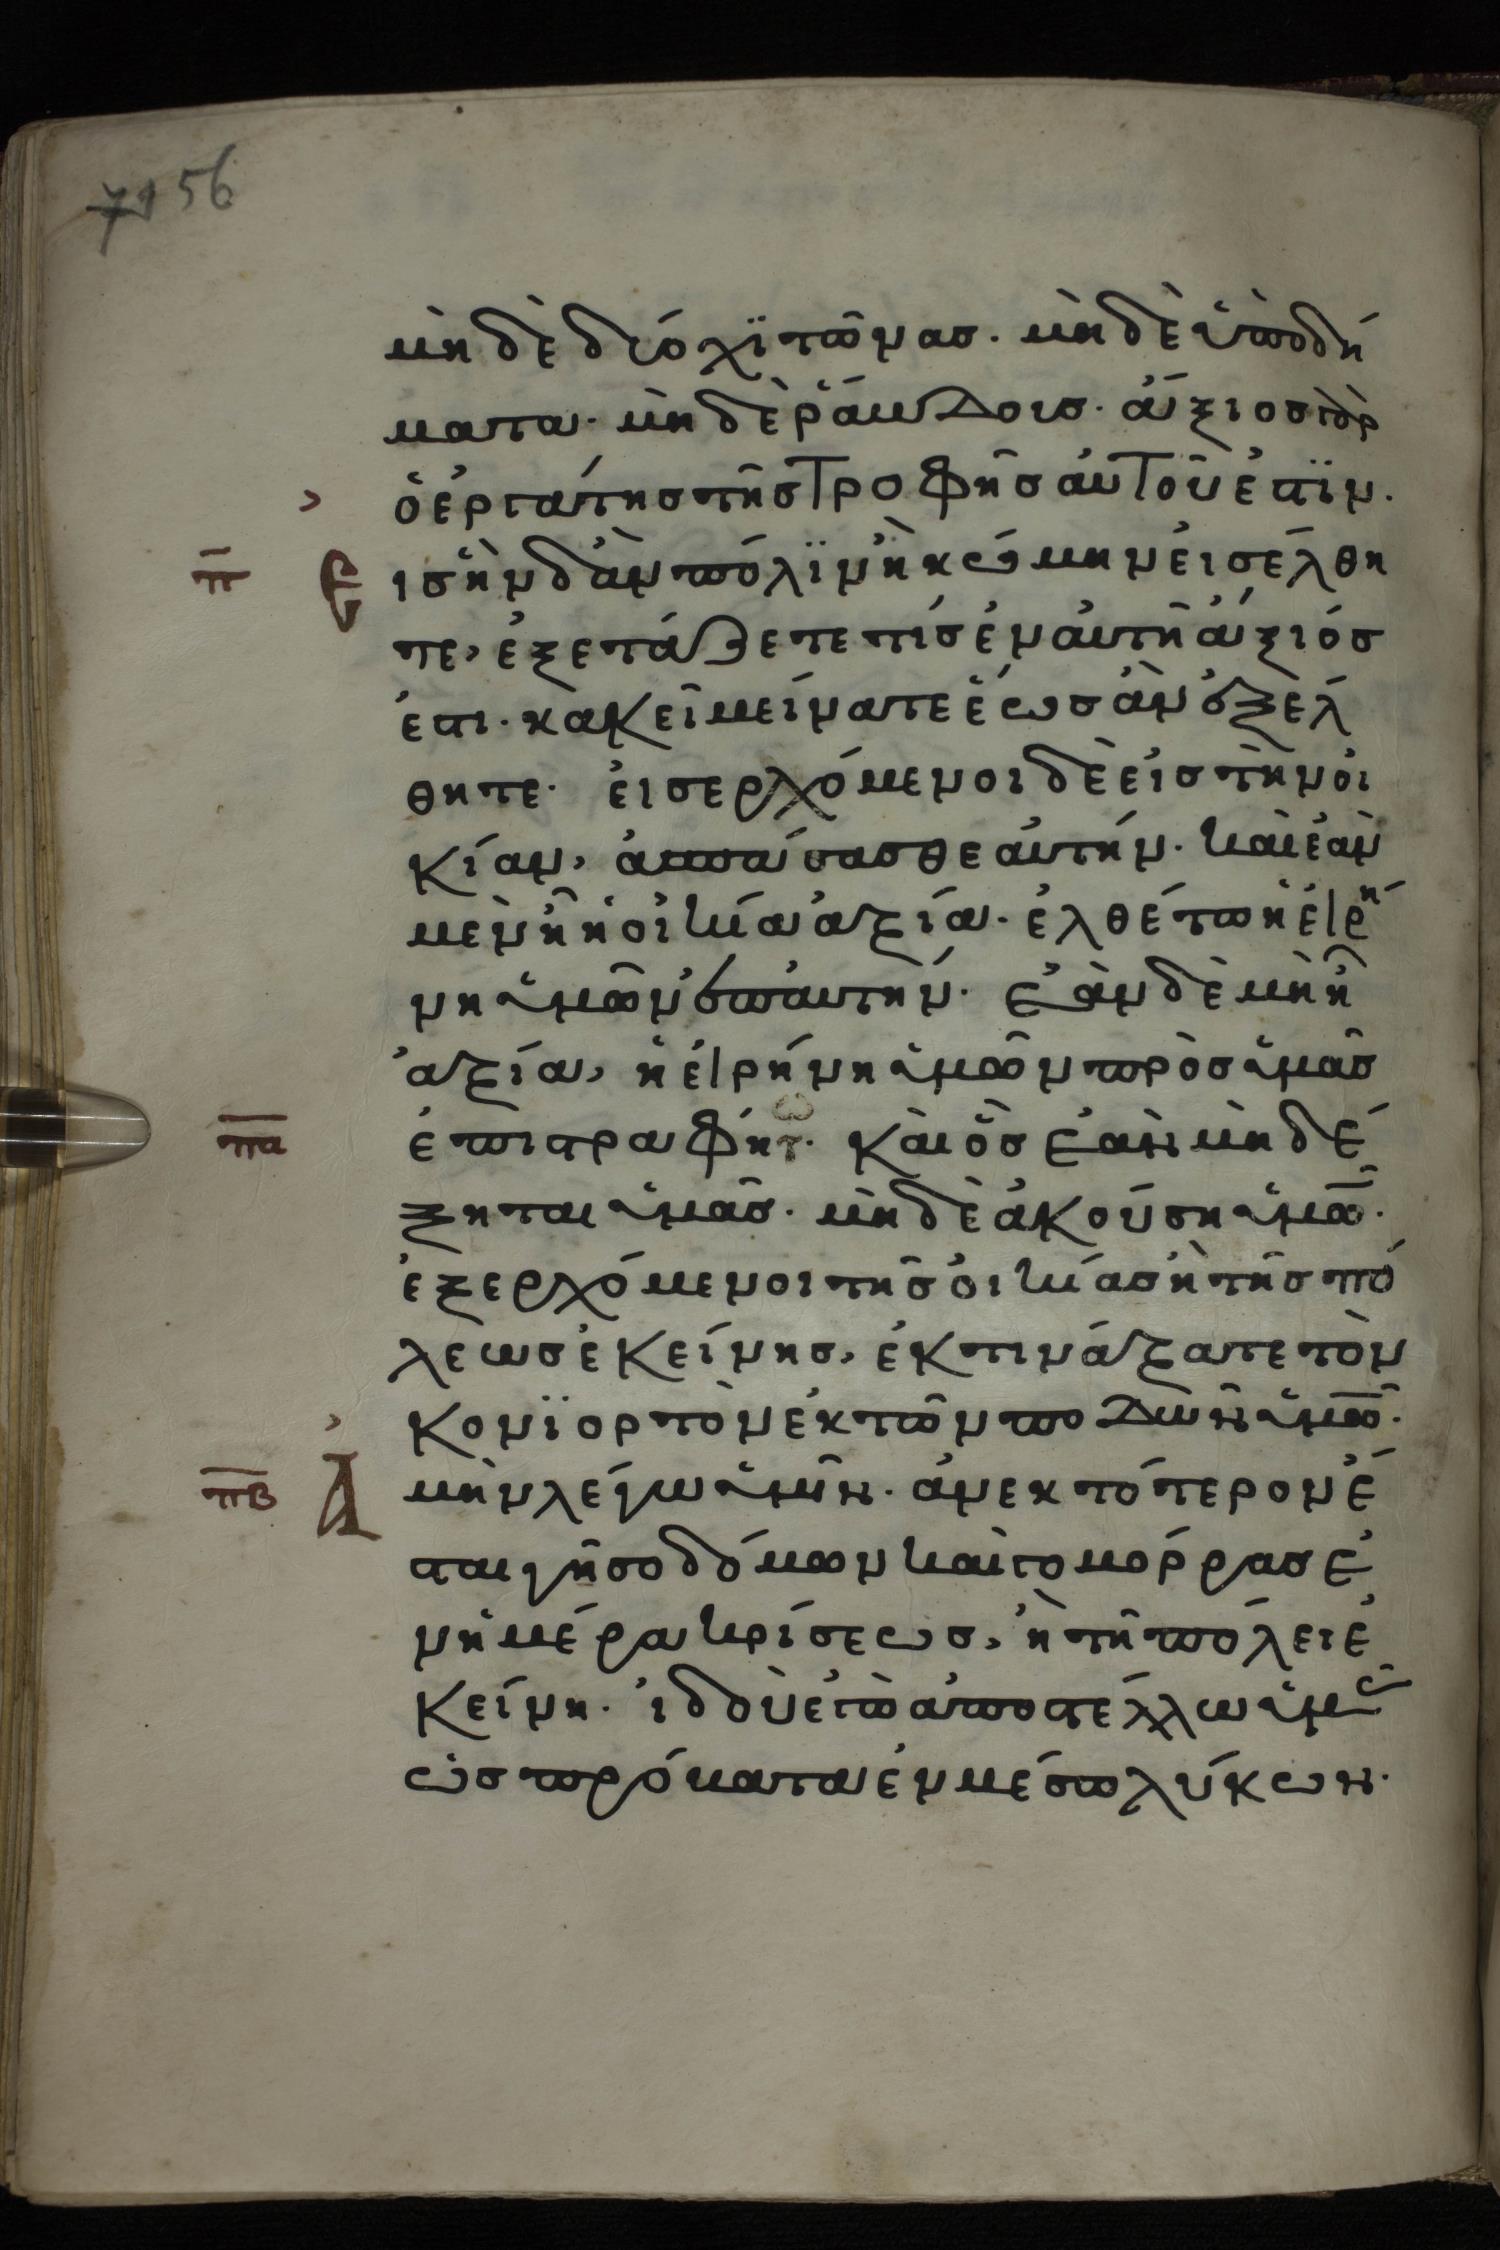 71 56
μὴδὲ δύο χϊτῶνας· μὴδὲ ὑποδή
ματα· μὴδὲ ῥάμβδοις· ἄξιος γὰρ
ὁ ἐργάτης τῆς τροφῆς αὐτοῦ ἐστϊν·
π̅ Ε ις ἣν δ' ἂν πόλϊν ἢ κώμην εἰσέλθη
τε, ἐξετάζετε τίς ἐν αὐτῆ ἄξιός
ἐστι· κακεῖ μείνατε ἕως ἂν ἐξέλ
θητε· εἰσερχόμενοι δὲ εἰς τὴν οἰ
κίαν, ἀσπάσασθε αὐτήν· καὶ ἐὰν
μὲν ἦ ἡ οἰκία ἀξία· ἐλθέτω ἡ εἰρή
νη ὑμῶν ἐπ' αὐτήν· ἐὰν δὲ μὴ ἦ
ἀξία, ἡ εἰρήνη ὑμῶν πρὸς ὑμᾶς
π̅α̅ ἐπιστραφήτω· καὶ ὃς ἐὰν μὴ δέ
ξηται ὑμᾶς· μὴδὲ ἀκούση ὑμῶ̅·
ἐξερχόμενοι τῆς οἰκίας ἢ τῆς πό
λεως ἐκείνης, ἐκτινάξατε τὸν
κονϊορτὸν ἐκ τῶν ποδῶν ὑμῶ̅·
π̅β̅ Α μὴν λέγω ὑμῖν· ἀνεκτότερον ἔ
σται γῆ σοδόμων καὶ γομόρρας ἐ
ν ἡμέρα κρίσεως, ἢ τῆ πόλει ἐ
κείνη· ἰδοὺ ἐγὼ ἀποστέλλω ὑμᾶς
ὡς πρόβατα ἐν μέσω λύκων·